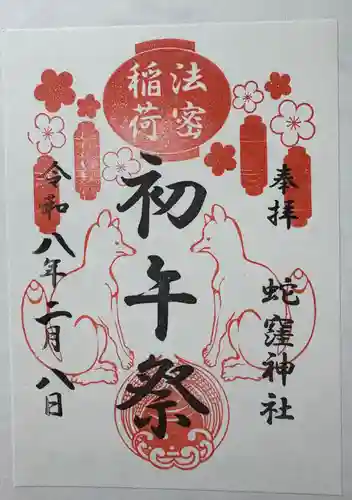 法密
稲荷
奉拝
蛇窪神社
初午祭
令和八年二月八日